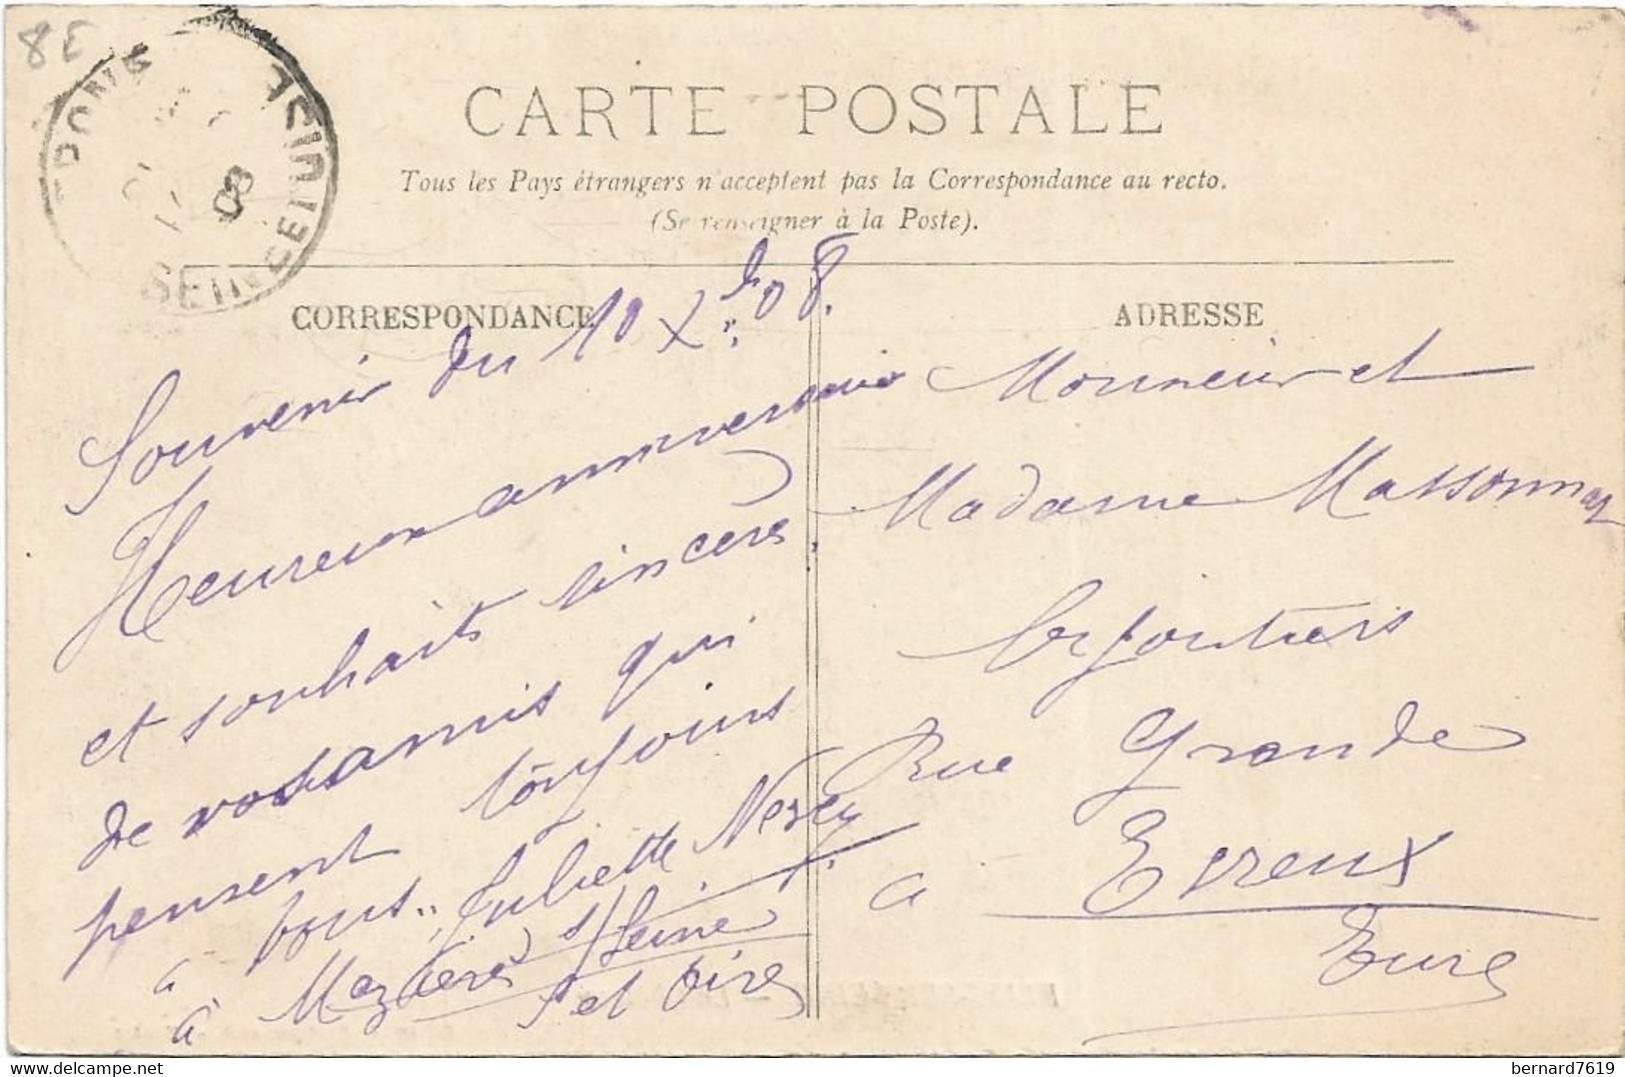 8E
EPONE
SEINE ET OISE
08
CARTE POSTALE
Tous les Pays étrangers n'acceptent pas la Correspondance au recto.
(Se renseigner à la Poste).
CORRESPONDANCE
Souvenir du 10 Xbre 08.
Heureux anniversaire
et souhaits sincères
de vos amis qui
pensent toujours
à vous. Juliette
à Mezières s/Seine
S et Oise
ADRESSE
Monsieur et
Madame Massonnay
Rue Grande
à Evreux
Eure
bernard7619